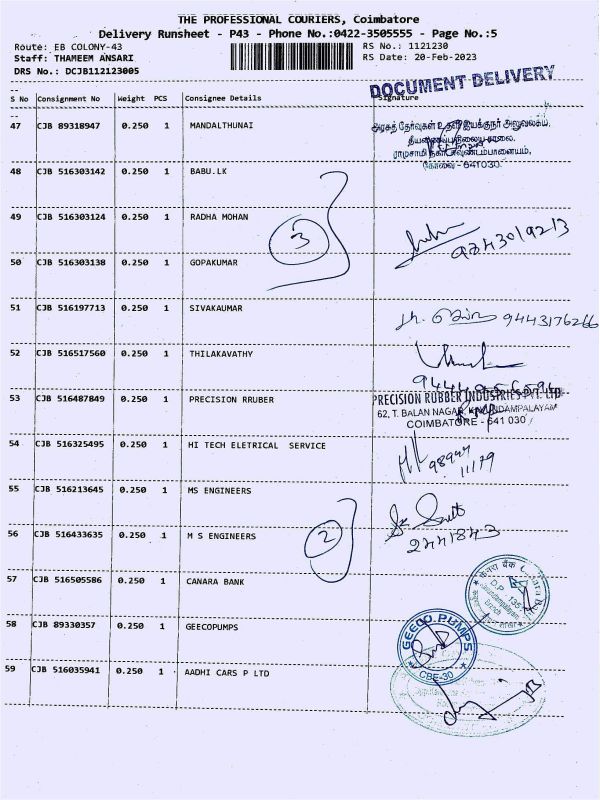 THE PROFESSIONAL COURIERS, Coimbatore
Delivery Runsheet - P43 - Phone No.:0422-3505555 - Page No.:5
Route: EB COLONY-43
RS No.: 1121230
Staff: THAMEEM ANSARI
RS Date: 20-Feb-2023
DRS No.: DCJB112123005
DOCUMENT DELIVERY
S No Consignment No Weight PCS Consignee Details Signature
47 CJB 89318947 0.250 1 MANDALTHUNAI
அரசுத் தேர்வுகள் உதவி இயக்குநர் அலுவலகம்,
கோவை - 641 030
48 CJB 516303142 0.250 1 BABU.LK
49 CJB 516303124 0.250 1 RADHA MOHAN
3
9243019213
50 CJB 516303138 0.250 1 GOPAKUMAR
51 CJB 516197713 0.250 1 SIVAKUMAR
9443176266
52 CJB 516517560 0.250 1 THILAKAVATHY
53 CJB 516487849 0.250 1 PRECISION RRUBER
PRECISION RUBBER INDUSTRIES PVT. LTD
62, T. BALAN NAGAR, KAVUNDAMPALAYAM
COIMBATORE - 641 030
54 CJB 516325495 0.250 1 HI TECH ELETRICAL SERVICE
55 CJB 516213645 0.250 1 MS ENGINEERS
56 CJB 516433635 0.250 1 M S ENGINEERS
2
2441843
57 CJB 516505586 0.250 1 CANARA BANK
58 CJB 89330357 0.250 1 GEECOPUMPS
GEECO PUMPS
CBE-30
59 CJB 516035941 0.250 1 AADHI CARS P LTD